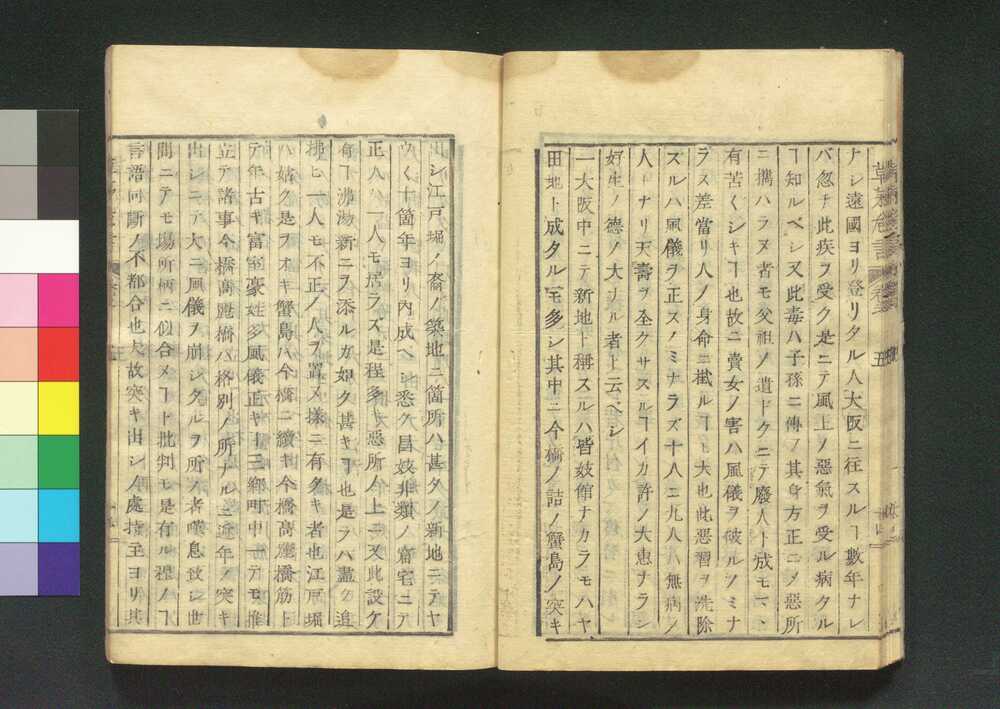 ナシ遠國ヨリ登リタル人大阪ニ往スルヿ數年ナレ
バ忽チ此疾ヲ受ク是ニテ風上ノ惡氣ヲ受ル病タル
ヿ知ルベシ又此毒ハ子孫ニ傳フ其身方正ニメ惡所
ニ携ハラヌ者モ父祖ノ遺ドクニテ廢人ト成モマヽ
有苦々シキヿ也故ニ賣女ノ害ハ風儀ヲ破ルノミナ
ラス差當リ人ノ身命ニ掛ルヿ大也此惡習ヲ洗除
ズルハ風儀ヲ正スノミナラズ十人ニ九人ハ無病ノ
人トナリ天壽ヲ全クサスルヿイカ許ノ大恵ナラン
好生ノ德ノ大ナル者ト云ベシ
一大阪中ニテ新地ト稱スルハ皆妓館ナカラモハヤ
田地ト成タルモ多シ其中ニ今 ノ詰ノ蟹島ノ突キ
出シ江戸堀ノ裔ノ築地二箇所ハ甚タノ新地ニテヤ
ウ〱十箇年ヨリ内成ベシ悉ク昌妓非類ノ窩宅ニテ
正人ハ一人モ居ラズ是程多キ惡所ノ上ニ又此設ケ
有ヿ沸湯新ニヲ添ルガ如ク甚キヿ也是ラハ盡ク追
拂ヒ一人モ不正ノ人ヲ置ヌ様ニ有タキ者也江戸堀
ハ姑ク是ヲオキ蟹島ハ今橋ニ續キ今橋高麗橋筋ト
テ年古キ富室豪姓多風儀正キ十三郷町中ーテモ推
立テ諸事今橋高麗橋ハ格別ノ所ナルニ近年ノ突キ
出シニテ大ニ風儀ヲ崩シタルヲ所ノ者嘆息致シ世
間ニテモ場所柄ニ似合ヌヿト批判モ是有ル 理ノヿ
言語同斷ノ不都合也夫故突キ出シノ處持主ヨリ其